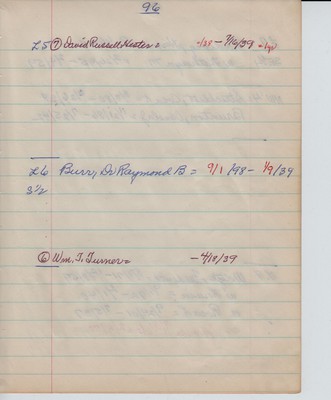 96
L5 ⑦ David Russell Hester = /38 - 7/16/39 = 1yr
L6 Burr, Dr Raymond B = 9/1/98 - 1/9/39
3 1/2
⑥ Wm. T. Turner = - 4/18/39